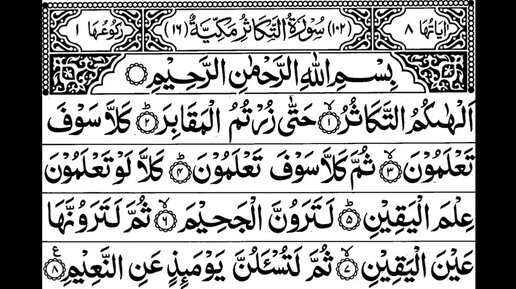 اٰیَاتُهَا ٨ (١٠٢) سُوْرَةُ التَّكَاثُرِ مَكِّیَّةٌ (١٦) رُكُوْعُهَا ١
بِسْمِ اللهِ الرَّحْمٰنِ الرَّحِیْمِ
اَلْهٰىكُمُ التَّكَاثُرُ ۙ﴿١﴾ حَتّٰى زُرْتُمُ الْمَقَابِرَ ؕ﴿٢﴾ كَلَّا سَوْفَ
تَعْلَمُوْنَ ۙ﴿٣﴾ ثُمَّ كَلَّا سَوْفَ تَعْلَمُوْنَ ؕ﴿٤﴾ كَلَّا لَوْ تَعْلَمُوْنَ
عِلْمَ الْیَقِیْنِ ؕ﴿٥﴾ لَتَرَوُنَّ الْجَحِیْمَ ۙ﴿٦﴾ ثُمَّ لَتَرَوُنَّهَا
عَیْنَ الْیَقِیْنِ ۙ﴿٧﴾ ثُمَّ لَتُسْـَٔلُنَّ یَوْمَىِٕذٍ عَنِ النَّعِیْمِ ﴿٨﴾ ع